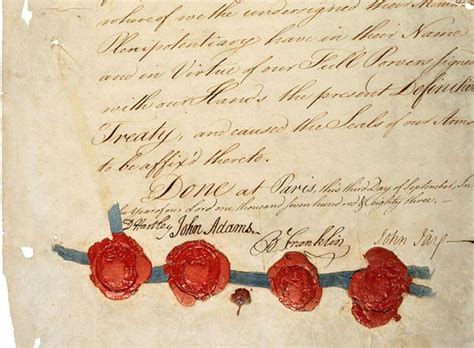 whereof we the undersigned their Ministers
Plenipotentiary have in their Name
and in Virtue of our Full Powers signed
with our Hands the present Definitive
Treaty, and caused the Seals of our Arms
to be affix'd thereto.
Done at Paris, this third Day of September, In
the Year of our Lord one thousand seven hundred & eighty three.
D Hartley John Adams. B Franklin John Jay